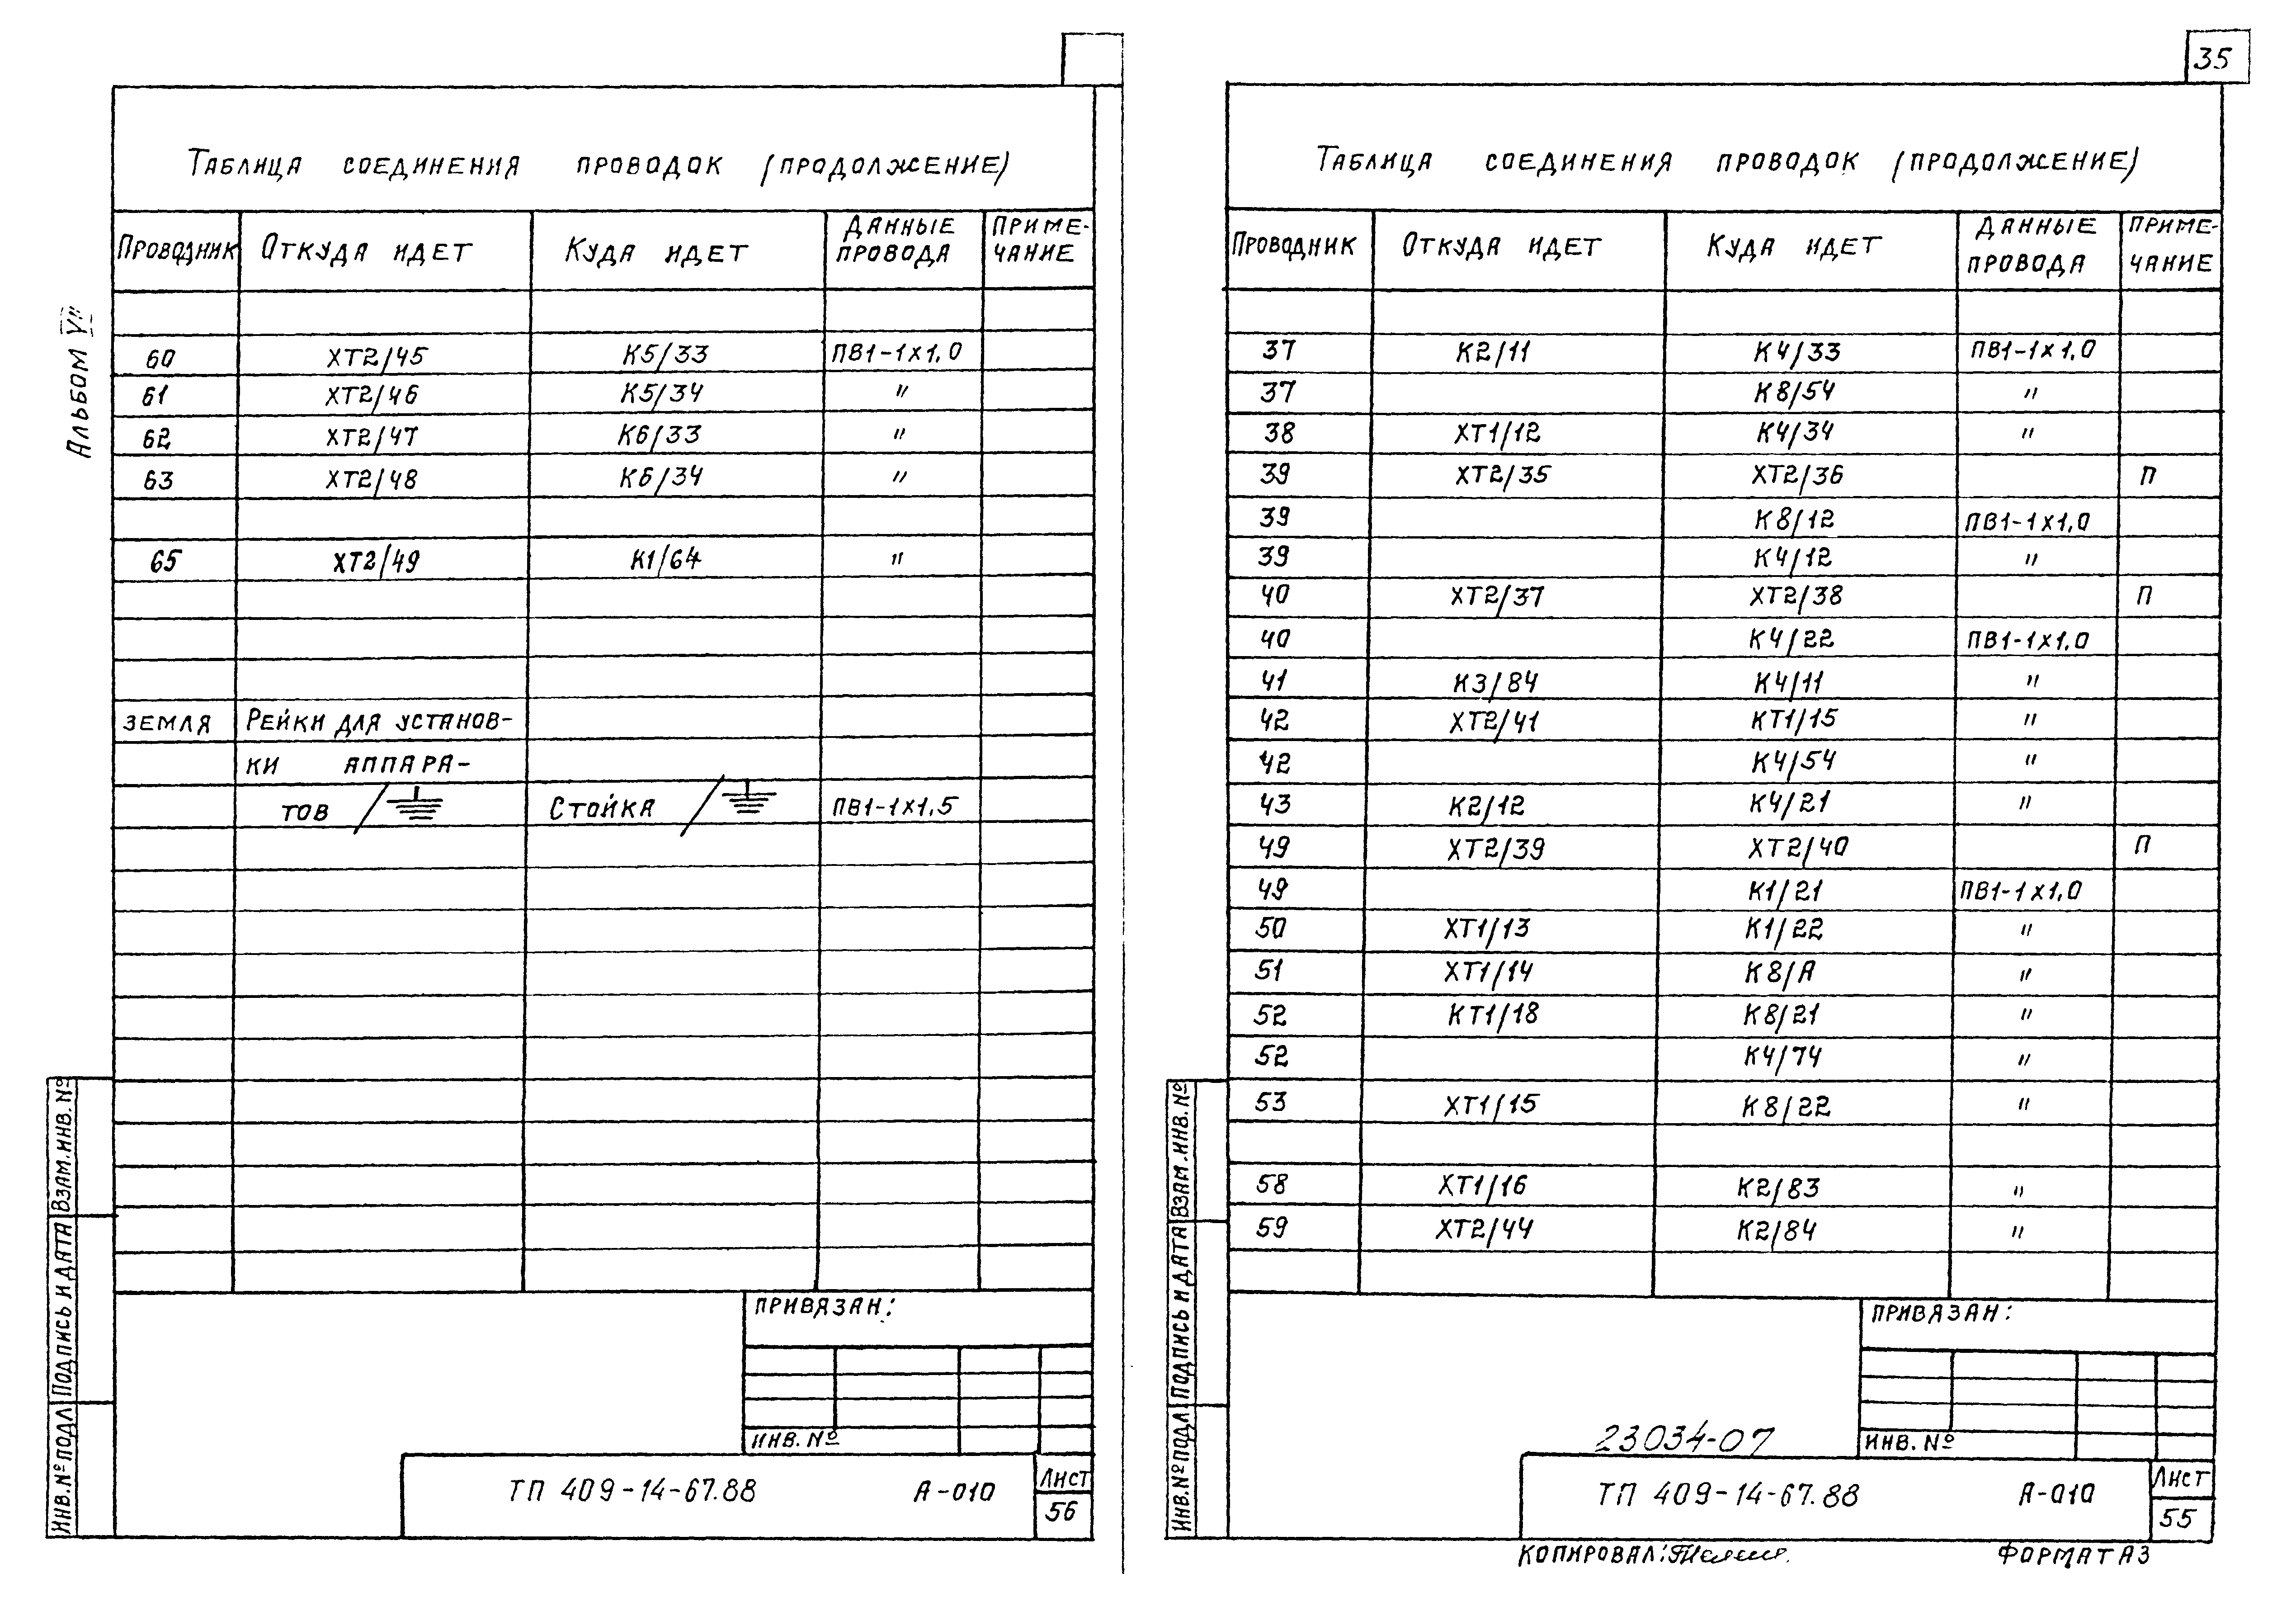 Альбом VII
Таблица соединения проводок (продолжение)
Проводник Откуда идет Куда идет Данные провода Примечание
60 ХТ2/45 К5/33 ПВ1-1×1,0
61 ХТ2/46 К5/34 "
62 ХТ2/47 К6/33 "
63 ХТ2/48 К6/34 "
65 ХТ2/49 К1/64 "
Земля Рейки для установ-
ки аппара-
тов / Стойка / ПВ1-1×1,5
Привязан:
Инв. №
ТП 409-14-67.88 А-010
Лист
56
Инв.№подл Подпись и дата Взам.инв.№
35
Таблица соединения проводок (продолжение)
Проводник Откуда идет Куда идет Данные провода Примечание
37 К2/11 К4/33 ПВ1-1×1,0
37 К8/54 "
38 ХТ1/12 К4/34 "
39 ХТ2/35 ХТ2/36 П
39 К8/12 ПВ1-1×1,0
39 К4/12 "
40 ХТ2/37 ХТ2/38 П
40 К4/22 ПВ1-1×1,0
41 К3/84 К4/11 "
42 ХТ2/41 КТ1/15 "
42 К4/54 "
43 К2/12 К4/21 "
49 ХТ2/39 ХТ2/40 П
49 К1/21 ПВ1-1×1,0
50 ХТ1/13 К1/22 "
51 ХТ1/14 К8/А "
52 КТ1/18 К8/21 "
52 К4/74 "
53 ХТ1/15 К8/22 "
58 ХТ1/16 К2/83 "
59 ХТ2/44 К2/84 "
Привязан:
Инв. №
23034-07
ТП 409-14-67.88 А-010
Лист
55
Инв.№подл Подпись и дата Взам.инв.№
Копировал: Формат А3